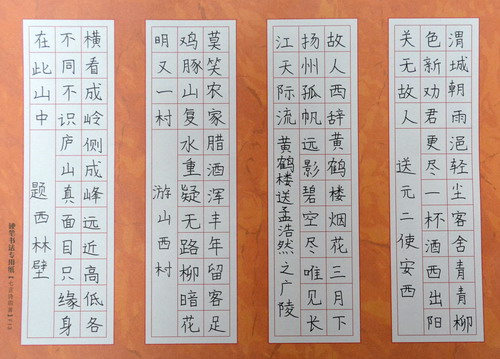 渭城朝雨浥轻尘客舍青青柳
色新劝君更尽一杯酒西出阳
关无故人 送元二使安西
故人西辞黄鹤楼烟花三月下
扬州孤帆远影碧空尽唯见长
江天际流 黄鹤楼送孟浩然之广陵
莫笑农家腊酒浑丰年留客足
鸡豚山复水重疑无路柳暗花
明又一村 游山西村
横看成岭侧成峰远近高低各
不同不识庐山真面目只缘身
在此山中 题西林壁
硬笔书法专用纸